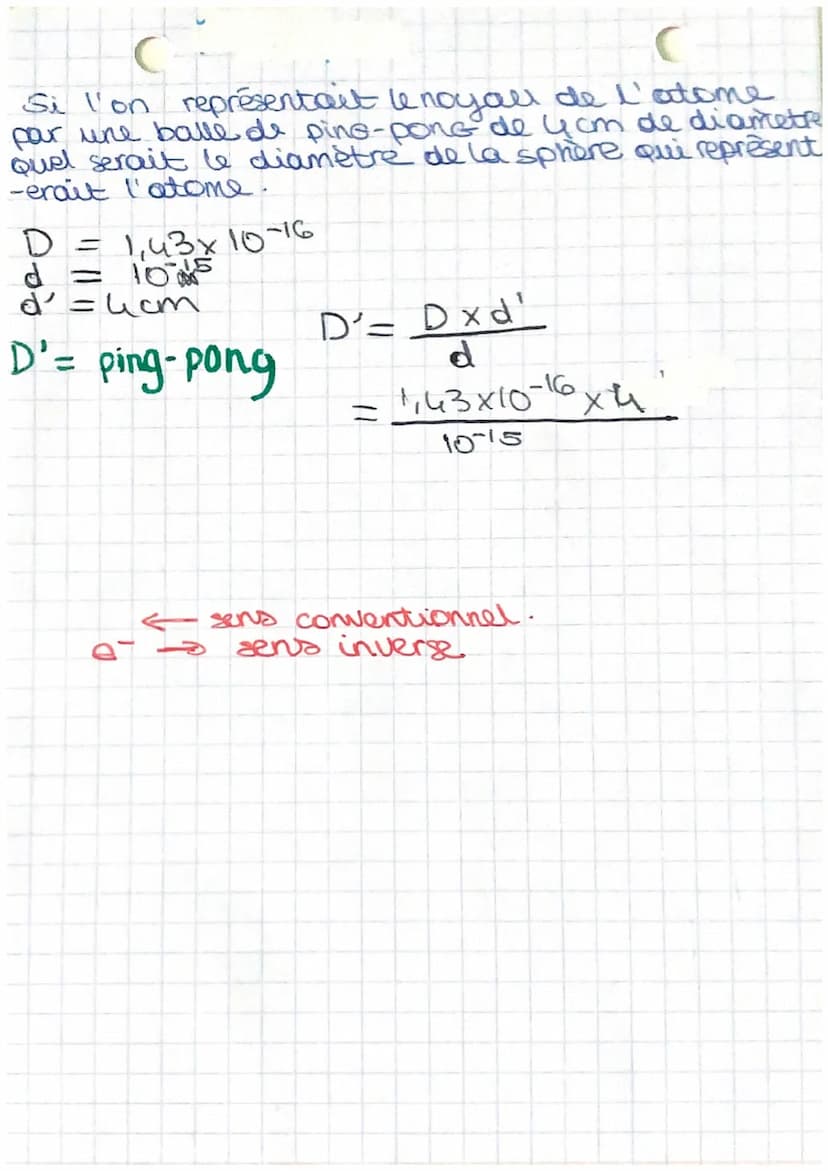 Si l'on représentait le noyau de l'atome
par une balle de ping-pong de 4cm de diamètre
quel serait le diamètre de la sphère qui représent
-erait l'atome.
D = 1,43 x 10⁻¹⁶
d = 10⁻¹⁵
d' = 4cm
D' = ping-pong
D' = D x d' / d
= 1,43 x 10⁻¹⁶ x 4 / 10⁻¹⁵
← sens conventionnel.
e⁻ → sens inverse